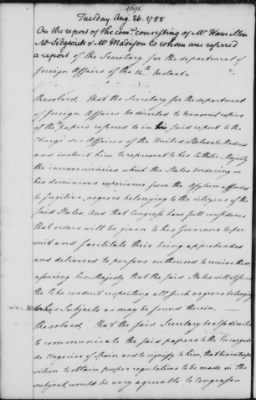 Tuesday Aug. 26. 1788
On the report of the com.ee consisting of Mr Hamilton
Mr Sedgwick & Mr Madison to whom was referred
a report of the Secretary for the department of
foreign Affairs of the 14th Instant.
Resolved, That the Secretary for the department
of foreign Affairs be directed to transmit copies
of the papers referred to in his said report to the
Chargé des Affaires of the United States at Madrid
and instruct him to represent to his Catholic Majesty
the inconveniencies which the States bordering on
his dominions experience from the Asylum afforded
to fugitive negroes belonging to the citizens of the
said States. And that Congress have full confidence
that orders will be given to his Governors to per-
mit and facilitate their being apprehended
and delivered to persons authorised to receive them
assuring his Majesty that the said States will observe
the like conduct respecting all such negroes belonging
to his Subjects as may be found therein.
Resolved, That the said Secretary be also directed
to communicate the said papers to the Encargado
de Negocios of Spain and to signify to him, that his interpo-
sition to obtain proper regulations to be made in the
subject would be very agreeable to Congress